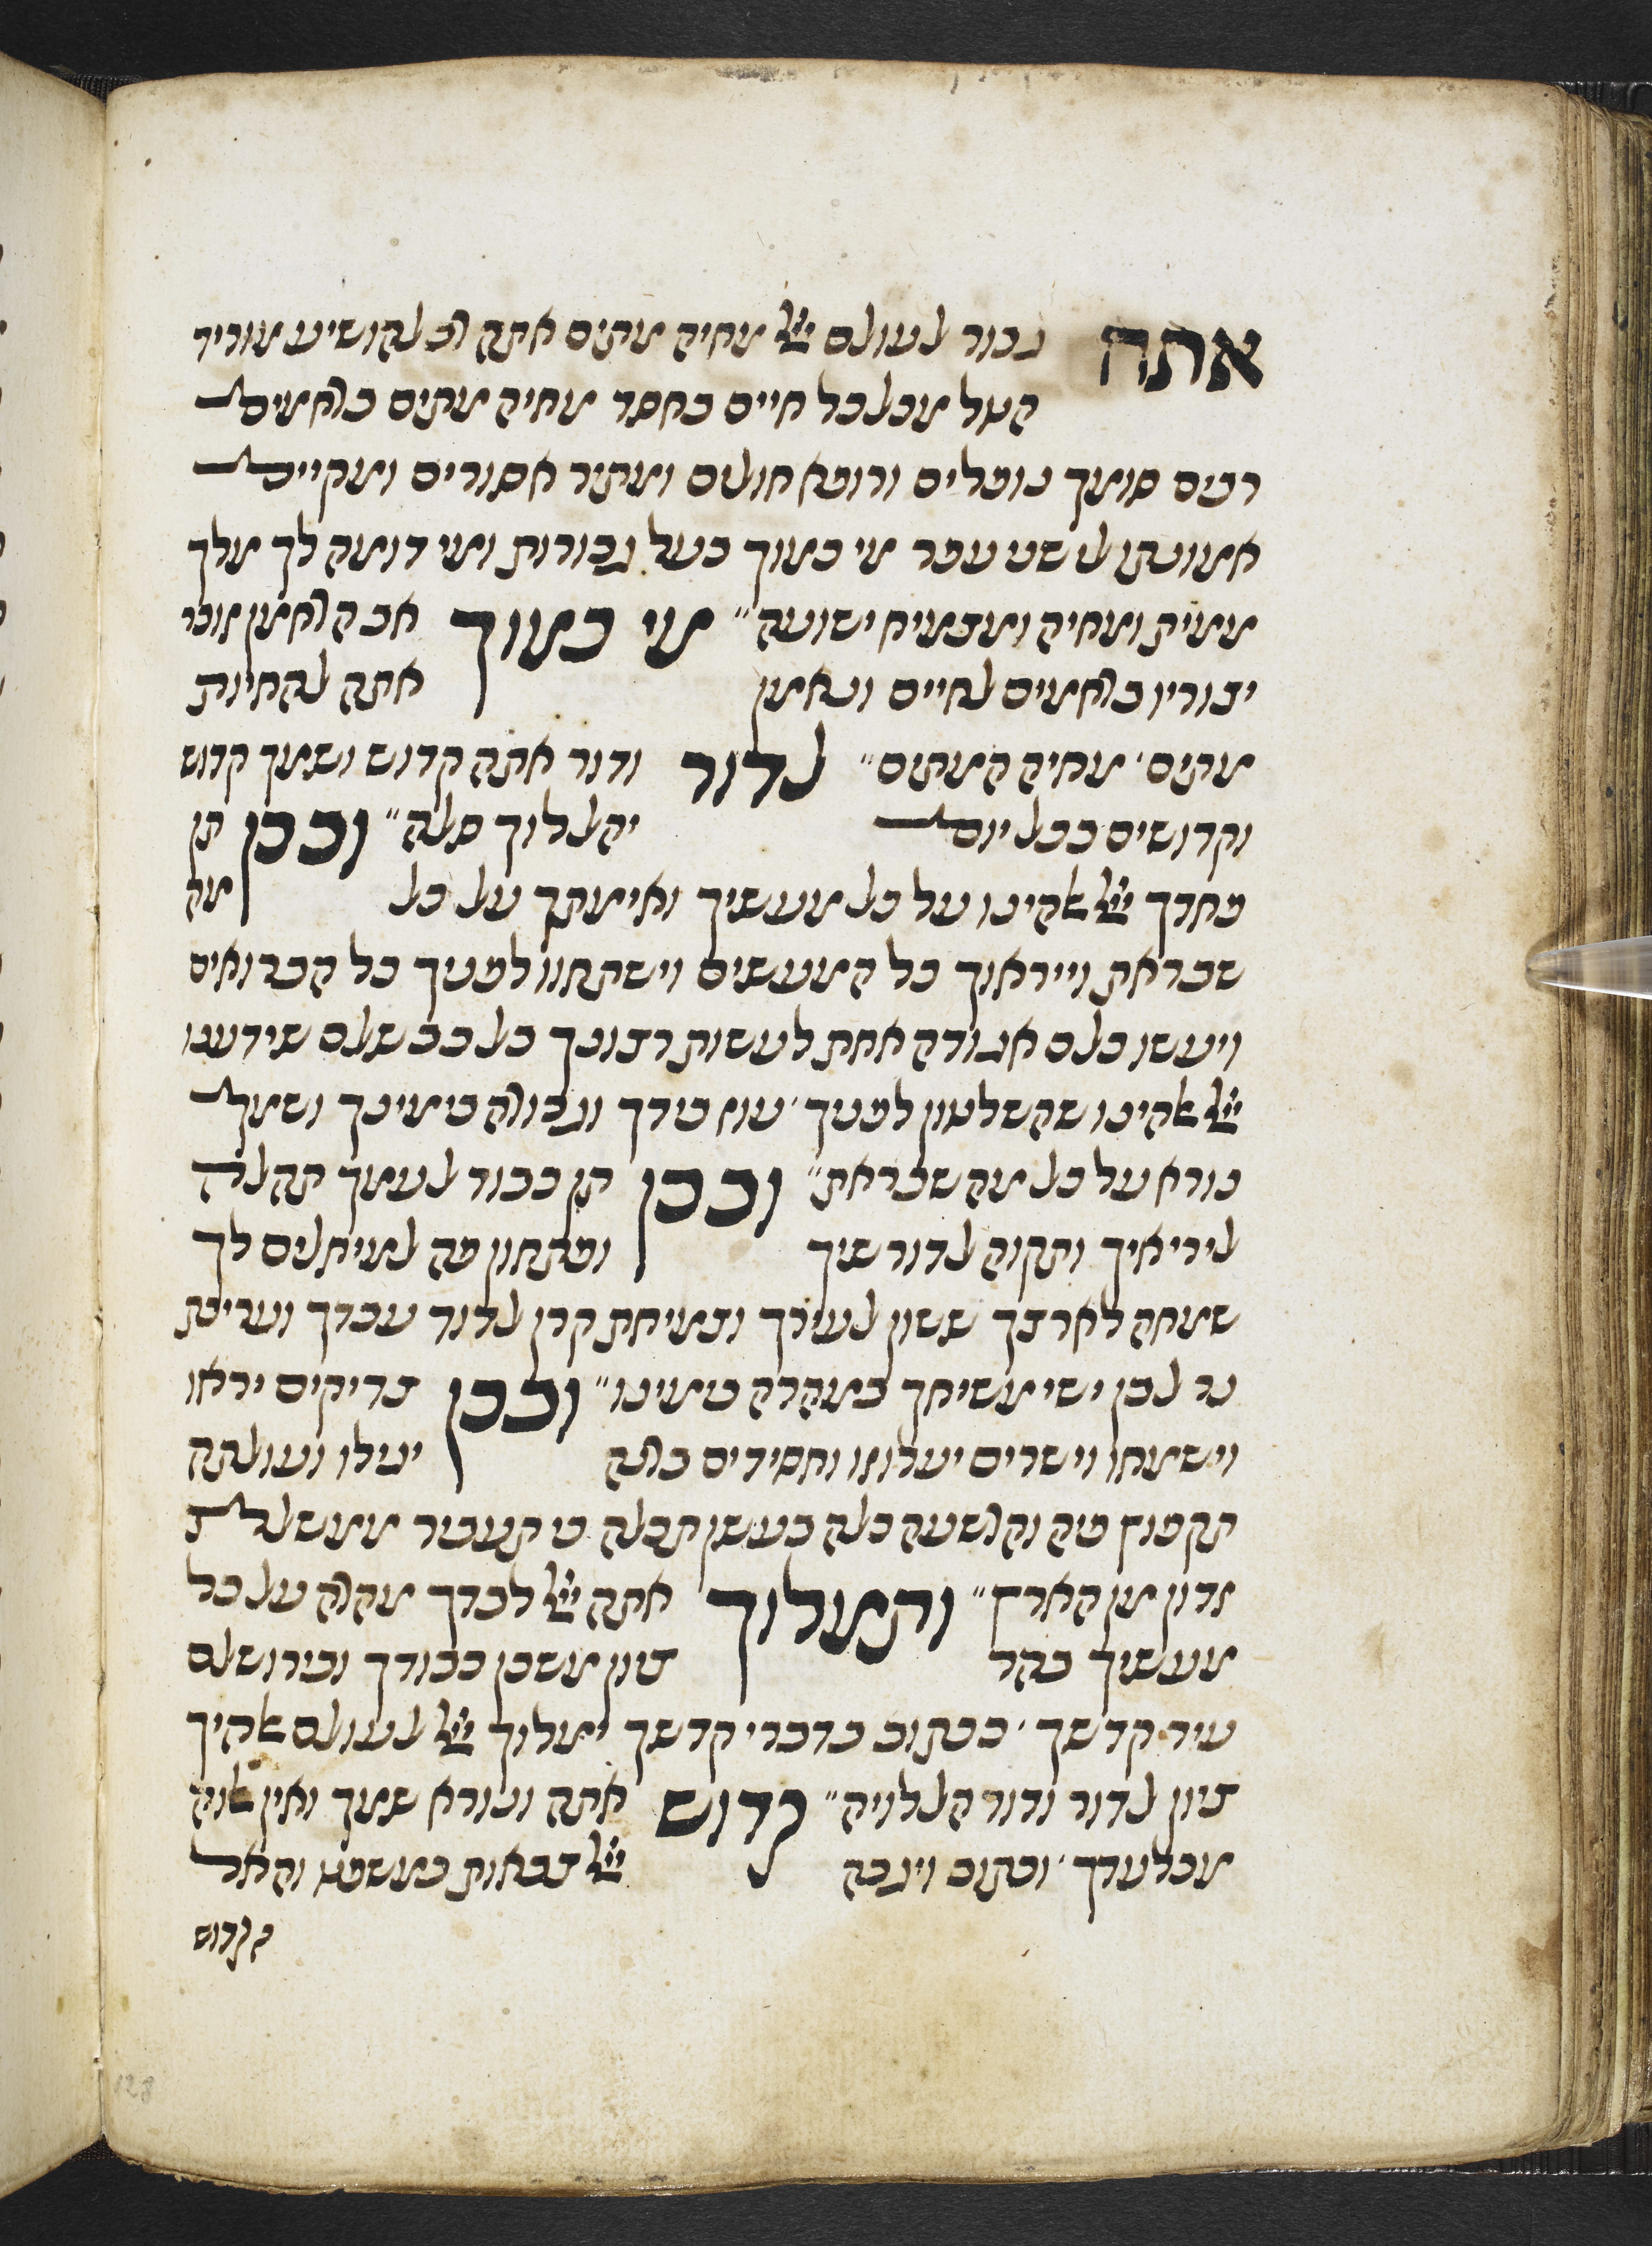 אתה גבור לעולם יי' מחיה מתים אתה רב להושיע מוריד
הטל מכלכל חיים בחסד מחיה מתים ברחמים
רבים סומך נופלים ורופא חולים ומתיר אסורים ומקיים
אמונתו לישני עפר מי כמוך בעל גבורות ומי דומה לך מלך
ממית ומחיה ומצמיח ישועה" מי כמוך אב הרחמן זוכר
יצוריו ברחמים לחיים ונאמן אתה להחיות
מתים' מחיה המתים" לדור ודור אתה קדוש ושמך קדוש
וקדושים בכל יום יהללוך סלה" ובכן תן
פחדך יי' אלהינו על כל מעשיך ואימתך על כל מה
שבראת וייראוך כל המעשים וישתחוו לפניך כל הברואים
ויעשו כלם אגודה אחת לעשות רצונך בלבב שלם שידענו
יי' אלהינו שהשלטון לפניך' עוז בידך וגבורה בימינך ושמך
נורא על כל מה שבראת" ובכן תן כבוד לעמך תהלה
ליריאיך ותקוה לדורשיך ופתחון פה למיחלים לך
שמחה לארצך ששון לעירך וצמיחת קרן לדוד עבדך ועריכת
נר לבן ישי משיחך במהרה בימינו" ובכן צדיקים יראו
וישמחו וישרים יעלוזו וחסידים ברנה יגילו ועולתה
תקפוץ פיה והרשעה כלה כעשן תכלה כי תעביר ממשלת
זדון מן הארץ" ותמלוך אתה יי' לבדך מהרה על כל
מעשיך בהר ציון משכן כבודך ובירושלם
עיר קדשך' ככתוב בדברי קדשך ימלוך יי' לעולם אלהיך
ציון לדור ודור הללויה" קדוש אתה ונורא שמך ואין אלוה
מבלעדך' וכתוב ויגבה יי' צבאות במשפט והאל
הקדוש